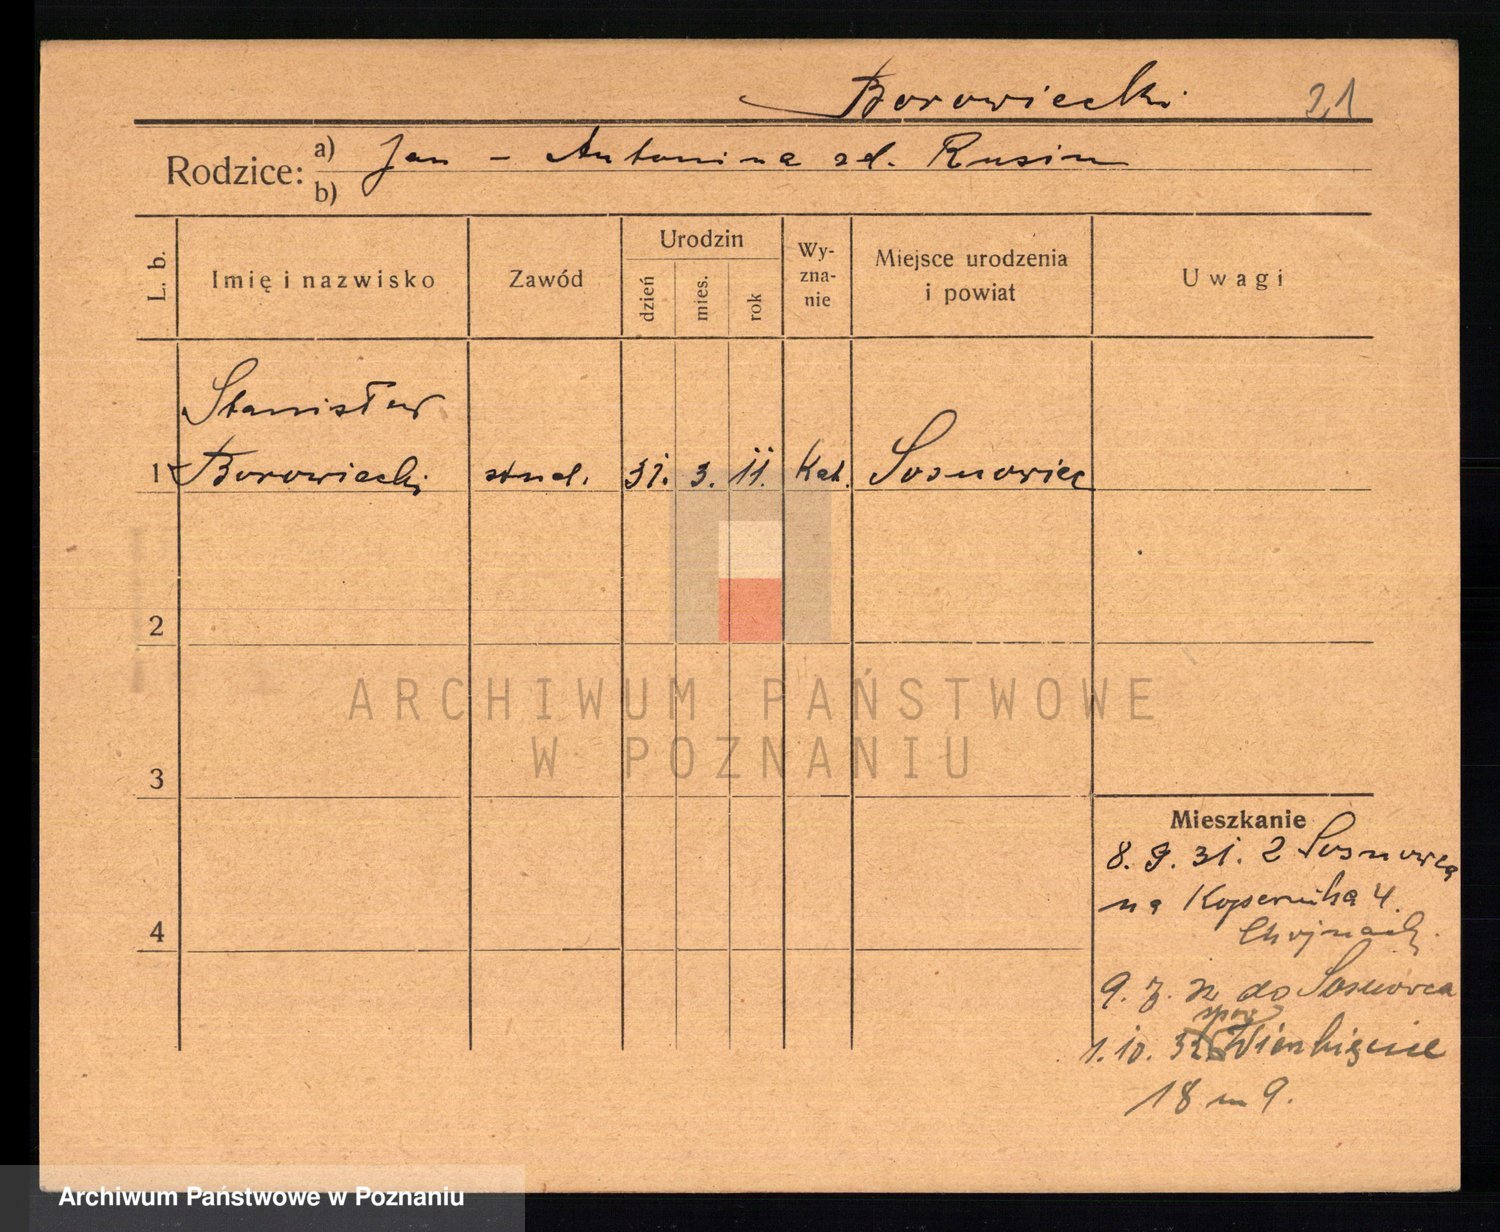 Borowiecki 21
Rodzice: a) Jan - Antonina zd. Rusin
b)
L. b. Imię i nazwisko Zawód Urodzin dzień mies. rok Wy-zna-nie Miejsce urodzenia i powiat Uwagi
Stanisław
1 Borowiecki stud. 31. 3. 11. Kat. Sosnowiec
2
3
4
Mieszkanie
8. 9. 31. z Sosnowca
na Kopernika 4.
9. 7. do Sosnowca
1. 10. 32
18 m 9.
ARCHIWUM PAŃSTWOWE
W POZNANIU
Archiwum Państwowe w Poznaniu